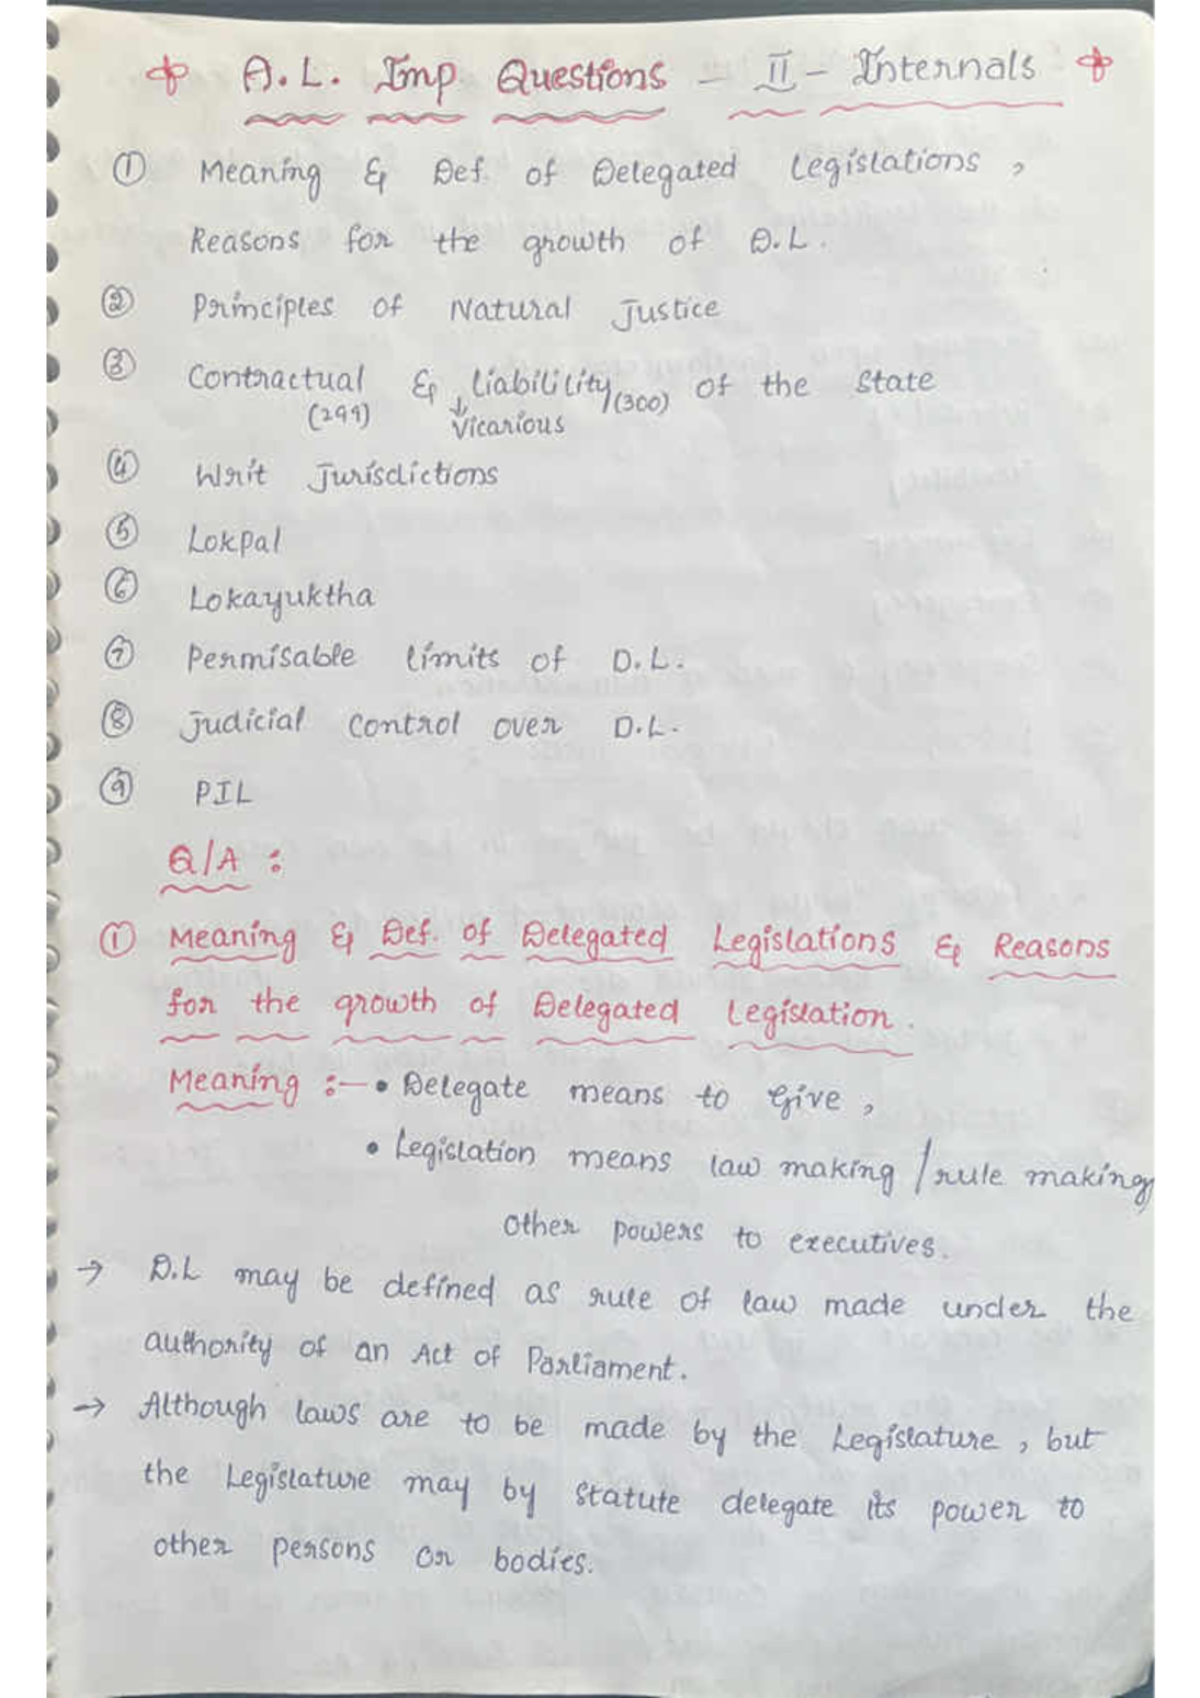 A.L. Imp Questions - II - Internals
① Meaning & Def. of Delegated Legislations,
Reasons for the growth of D.L.
② Principles of Natural Justice
③ Contractual & Liabilility (300) of the State
(299) Vicarious
④ Writ Jurisdictions
⑤ Lokpal
⑥ Lokayuktha
⑦ Permisable limits of D.L.
⑧ Judicial Control over D.L.
⑨ PIL
Q/A :
① Meaning & Def. of Delegated Legislations & Reasons
for the growth of Delegated Legislation.
Meaning :- • Delegate means to Give,
• Legislation means law making / rule making
other powers to executives.
→ D.L may be defined as rule of law made under the
authority of an Act of Parliament.
→ Although laws are to be made by the Legislature, but
the Legislature may by statute delegate its power to
other persons or bodies.